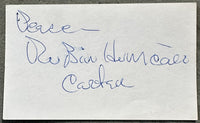 Peace —
Rubin Hurricane
Carter